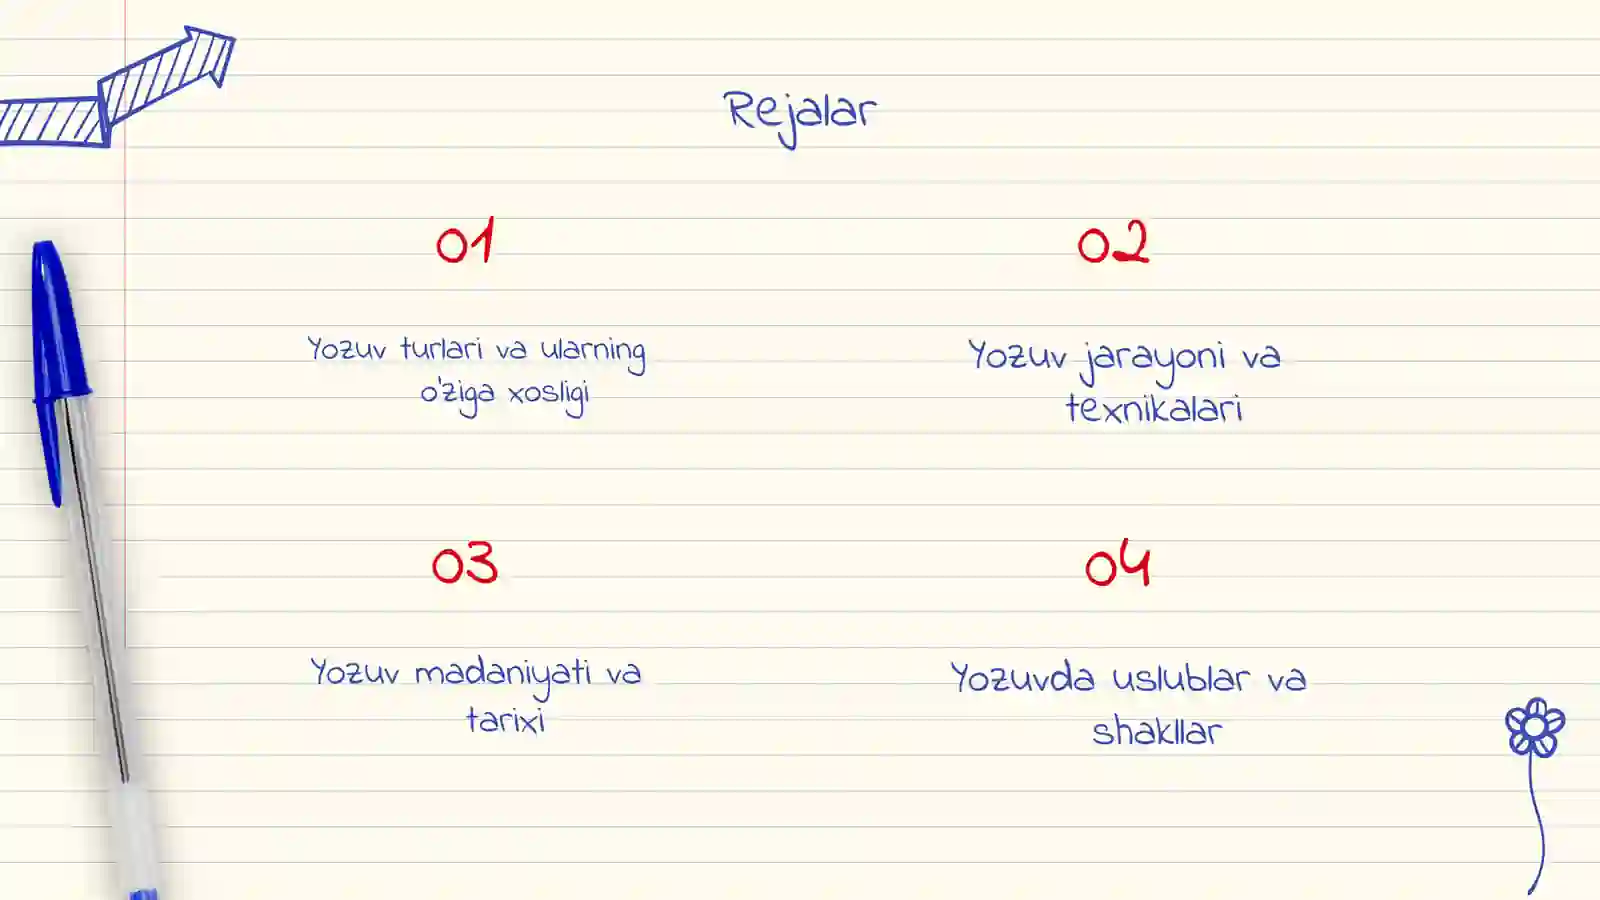 Rejalar
01
02
Yozuv turlari va ularning
o'ziga xosligi
Yozuv jarayoni va
texnikalari
03
04
Yozuv madaniyati va
tarixi
Yozuvda uslublar va
shakllar